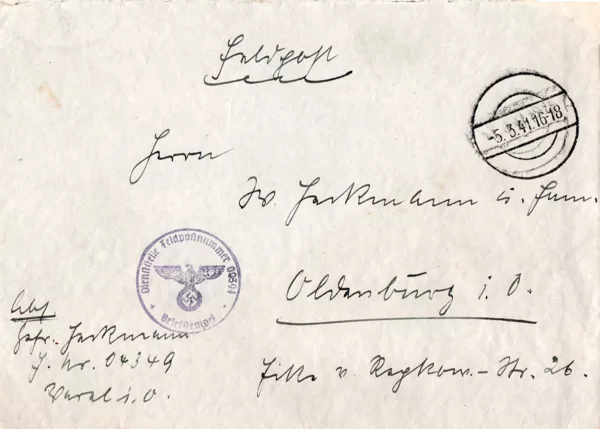 Feldpost
-5.3.41.16-18
Herrn
W. Heckmann u. Fam.
Oldenburg i. O.
v. Str. 26.
Dienststelle Feldpostnummer
Briefstempel
Abs
Gefr. Heckmann
Nr. 04349
Varel i. O.